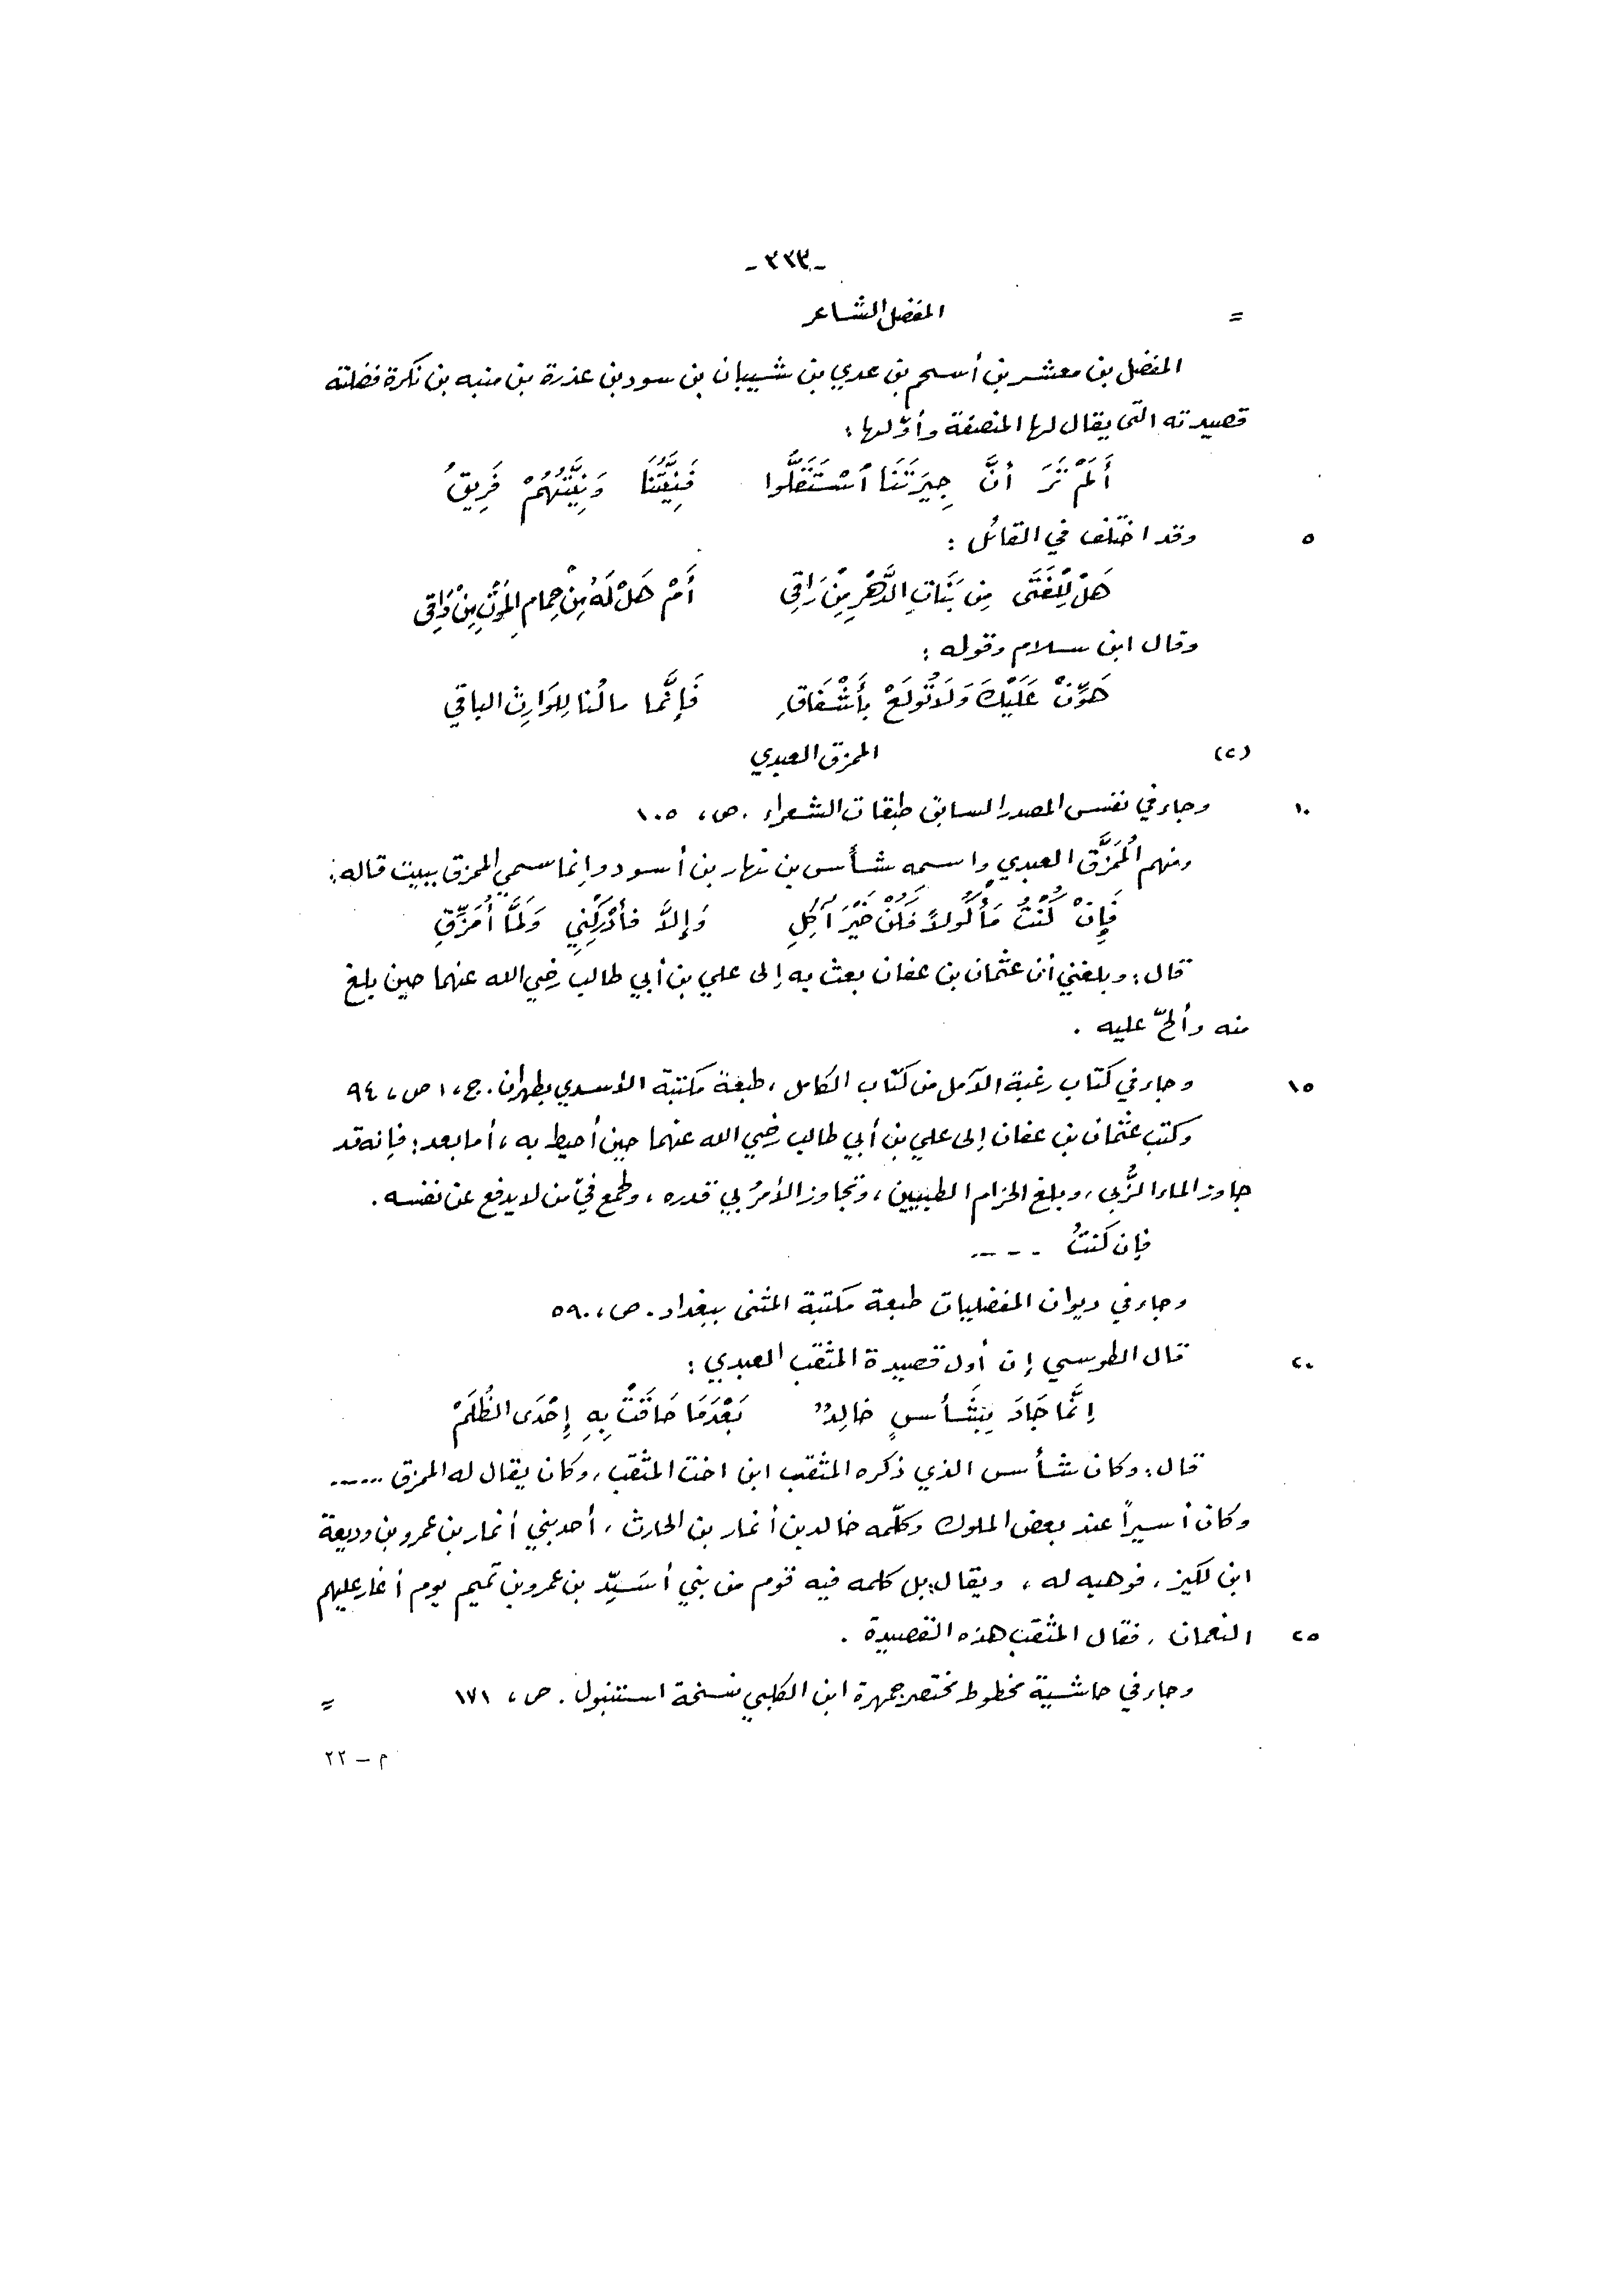 -٣٣٣-
= المفضل الشاعر
المفضل بن معشر بن أسحم بن عدي بن شيبان بن سود بن عذرة بن منبه بن نكرة فضلته
قصيدته التى يقال لها المنصفة وأوّلها :
أَلَمْ تَرَ أنَّ جِيَرَتَنَا ٱسْتَقَلُّوا فَنِيَّتُنَا وَنِيَّتُهُمْ فَرِيقُ
٥ وقد اختلف في القائل :
هَلْ لِلْفَتَى مِن بَنَاتِ الدَّهْرِ مِنْ رَاقِي أَمْ هَلْ لَهُ مِنْ حِمامِ المَوْتِ مِنْ وَاقِي
وقال ابن سلام وقوله :
هَوِّنْ عَلَيْكَ وَلَا تُولَعْ بِأَشْفَاقِ فَإِنَّما مالُنا لِلوَارِثِ الباقي
(٢) الممزق العبدي
١٠ وجاء في نفس المصدر السابق طبقات الشعراء . ص ، ١٠٥
ومنهم المُمَزَّق العبدي واسمه شأس بن نهار بن أسود وإنما سمي الممزق ببيت قاله :
فَإِنْ كُنْتُ مَأْكُولاً فَكُنْ خَيْرَ آكِلِ وَإلاَّ فَأدْرِكْنِي وَلَمَّا أُمَزَّقِ
قال : وبلغني أن عثمان بن عفان بعث به إلى علي بن أبي طالب رضي الله عنهما حين بلغ
منه وألحّ عليه .
١٥ وجاء في كتاب رغبة الآمل من كتاب الكامل ، طبعة مكتبة الأسدي بطهران . ج ، ١ ص ، ٩٤
وكتب عثمان بن عفان إلى علي بن أبي طالب رضي الله عنهما حين أحيط به ، أما بعد : فإنه قد
جاوز الماء الزُّبى ، وبلغ الحزام الطبيين ، وتجاوز الأمرُ بي قدره ، وطمع فيّ من لا يدفع عن نفسه .
فإن كنتُ - - - -
وجاء في ديوان المفضليات طبعة مكتبة المثنى ببغداد . ص ، ٥٩٠
٢٠ قال الطوسي إن أول قصيدة المثقب العبدي :
إِنَّما جَادَ بِشَأسٍ خالِدٌ بَعْدَمَا حَاقَتْ بِهِ إِحْدَى الظُّلَمْ
قال : وكان شأس الذي ذكره المثقب ابن اخت المثقب ، وكان يقال له الممزق ------
وكان أسيراً عند بعض الملوك وكلّمه خالد بن أنمار بن الحارث ، أحد بني أنمار بن عمرو بن وديعة
ابن لكيز ، فوهبه له ، ويقال : بل كلمه فيه قوم من بني أسَيِّد بن عمرو بن تميم يوم أغار عليهم
٢٥ النعمان ، فقال المثقب هذه القصيدة .
وجاء في حاشية مخطوط مختصر جمهرة ابن الكلبي نسخة استنبول . ص ، ١٧١ =
م – ٢٢